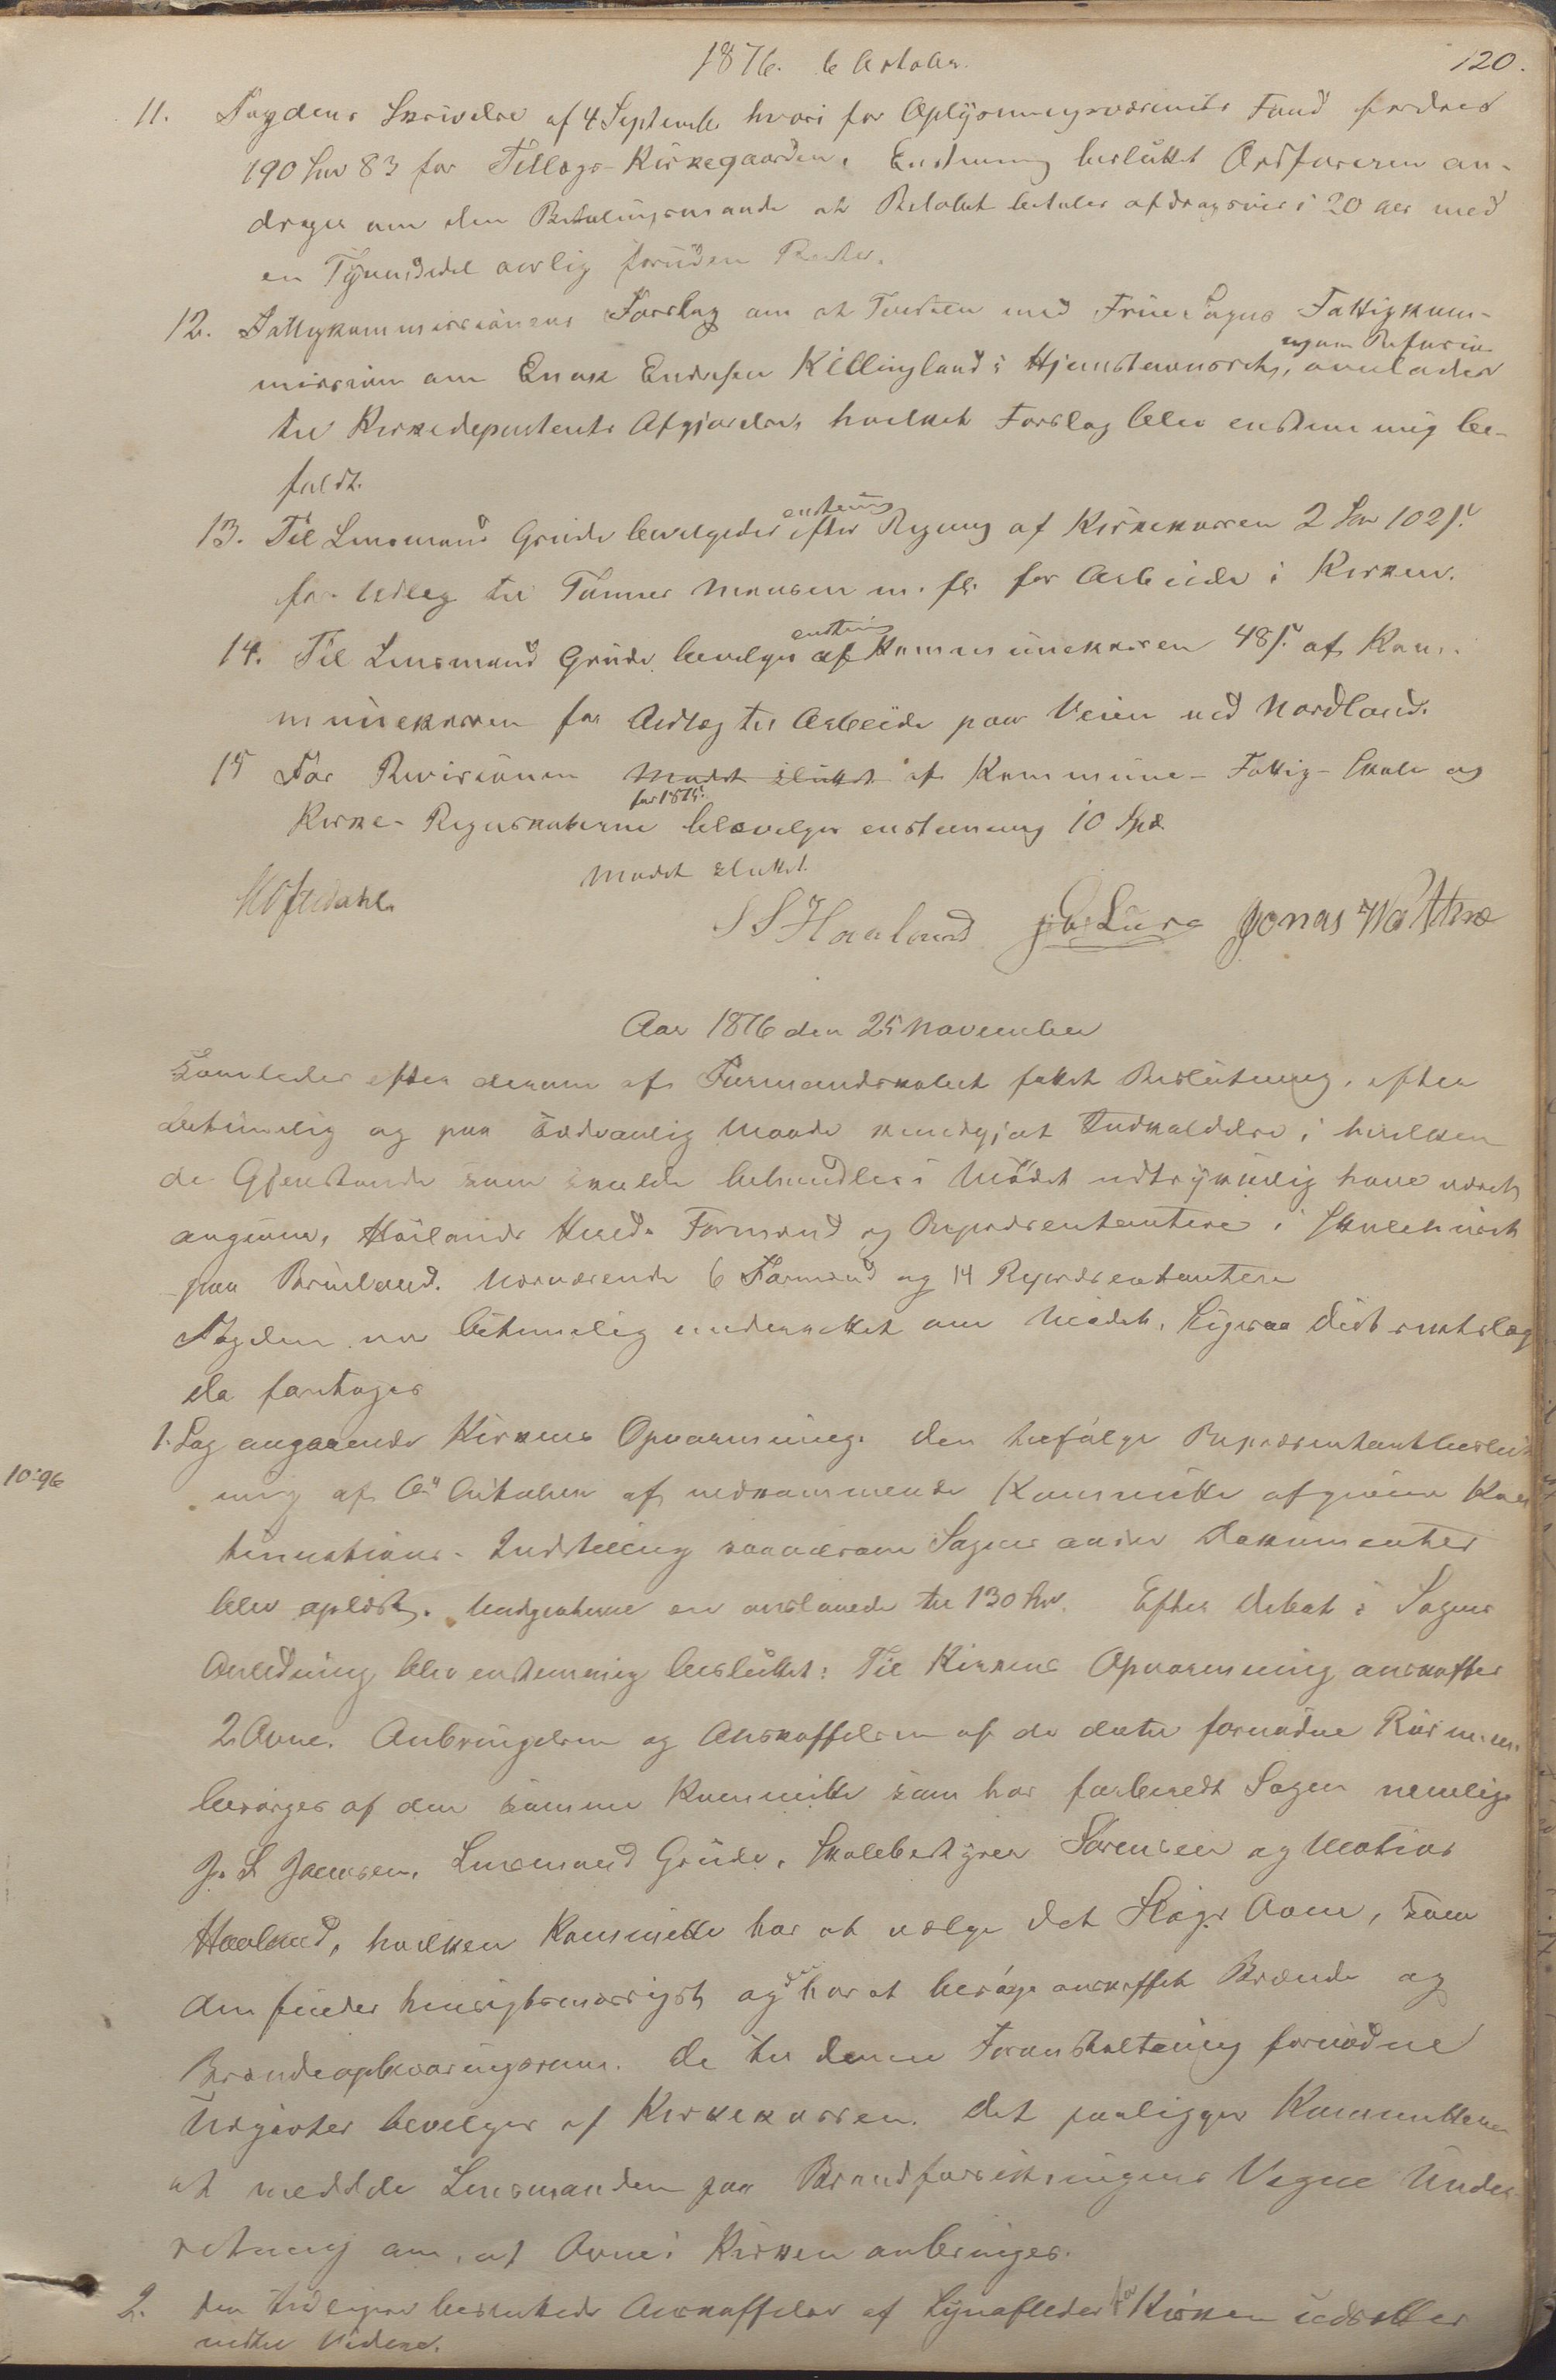 1876. 6 October. 120.
11. Fogdens Skrivelse af 4 September hvori for Oplysningsvæsenets Fond fordres
190 Spd 83 for Tillægs-Kirkegaarden. Enstemmig besluttet Ordføreren an-
drager om den Betalingsmaade at Beløbet betales afdragsvis i 20 Aar med
en Tyvendedel aarlig foruden Renter.
12. Fattigkommissionens Forslag om at Tvisten med Frue Sogns Fattigkom-
mission om Enok Endresen Killinglands Hjemstavnsret, ogsaa Refusion overlades
til Kirkedepartemets Afgjørelse, hvilket Forslag blev enstemmig bi-
faldt.
13. Til Lensmand Grude bevilgedes enstemig efter Regning af Kirkekassen 2 Spd 102 s.
for Udlæg til Tømmer Monsen m. fl. for Arbeide i Kirken.
14. Til Lensmand Grude bevilges enstemig af Kommunekassen 48 s. af Kom-
munekassen for Udlæg til Arbeide paa Veien ved Nordland.
15 For Revisionen Mødet sluttet af Kommune- Fattig- Skole og
Kirke-Regnskaberne for 1875. bevilges enstemmig 10 Spd.
Mødet sluttet.
S S Haaland Jonas Wathne
Aar 1876 den 25 November
Samledes efter derom af Formandskabet fattet Beslutning, efter
betimelig og paa sædvanlig Maade kundgjort Indkaldelse, i hvilken
de Gjenstande som skulde behandles i Mødet udtrykkelig have været
angivne, Høilands Herreds Formænd og Repræsentantere i Skolehuset
paa Brueland. Nærværende 6 Formænd og 14 Repræsentantere
Fogden var betimelig underrettet om Mødet, ligesaa Distriktslæg
da foretoges
1. Sag angaaende Kirkens Opvarmning. Den tilfølge Repræsentantbeslut
10:96
ning af 6te Oktober af vedkommende Kommitte afgivne Kon
tinuations-Indstilling saavelsom Sagens andre Dokumenter
blev oplæst. Udgifterne er anslaaede til 130 Spd. Efter Debat i Sagens
Anledning blev enstemmig besluttet: Til Kirkens Opvarmning anskaffes
2 Ovne. Anbringelsen og Anskaffelsen af de dertil fornødne Rør m. m.
besørges af den samme Kommitte som har forberedt Sagen nemlig
J. S. Jonasen, Lensmand Grude, Skolebestyrer Sørensen og Mathias
Haaland, hvilken Kommitte har at vælge det Slags Ovne, som
den finder hensigtsmæssigst og har at besørge anskaffet Brænde og
Brændeopbevaringsrum. De til denne Foranstaltning fornødne
Udgivter bevilges af Kirkekassen. Det paaligger Kommitteen
at meddele Lensmanden paa Brandforsikringens Vegne Under-
retning om, at Ovne i Kirken anbringes.
2. Den tidligere besluttede Anskaffelse af Lynafleder for Kirken udsættes
indtil Videre.